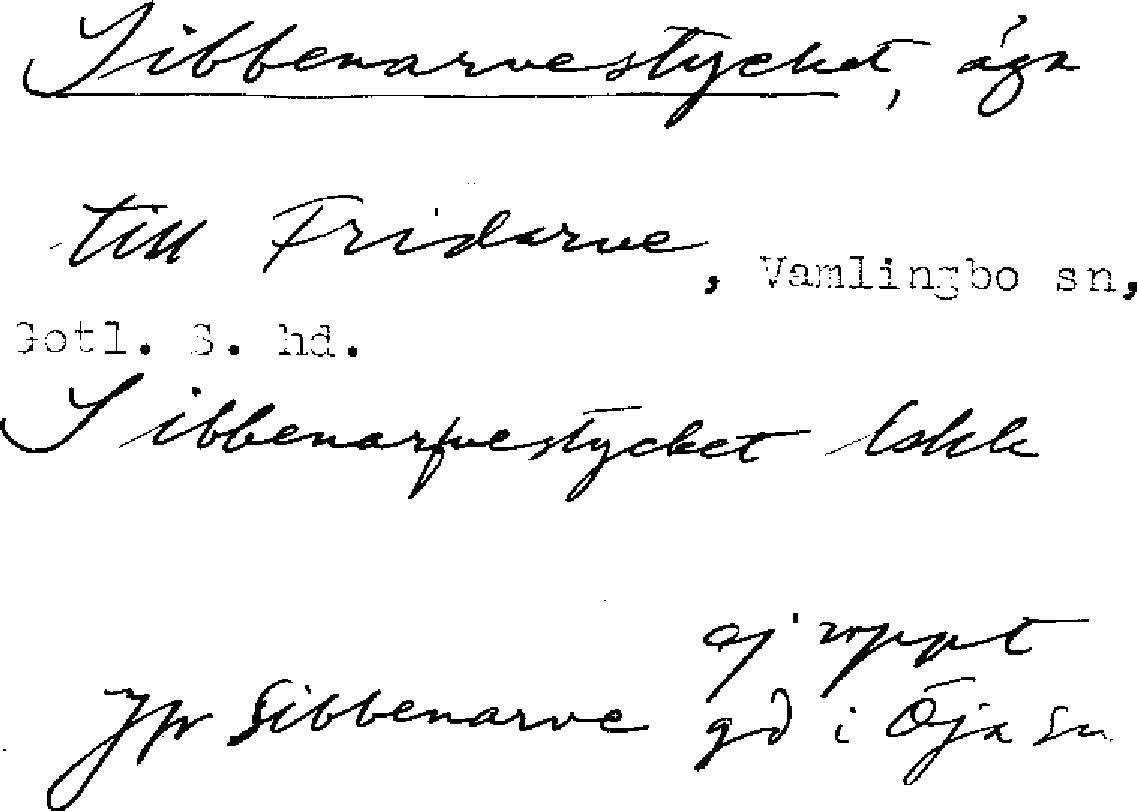 Sibbenarvestycket, äga
till Fridarve, Vamlingbo sn,
Gotl. S. hd.
Sibbenarfvestycket Lskk
ej uppt
Jfr Sibbenarve gd i Öja sn